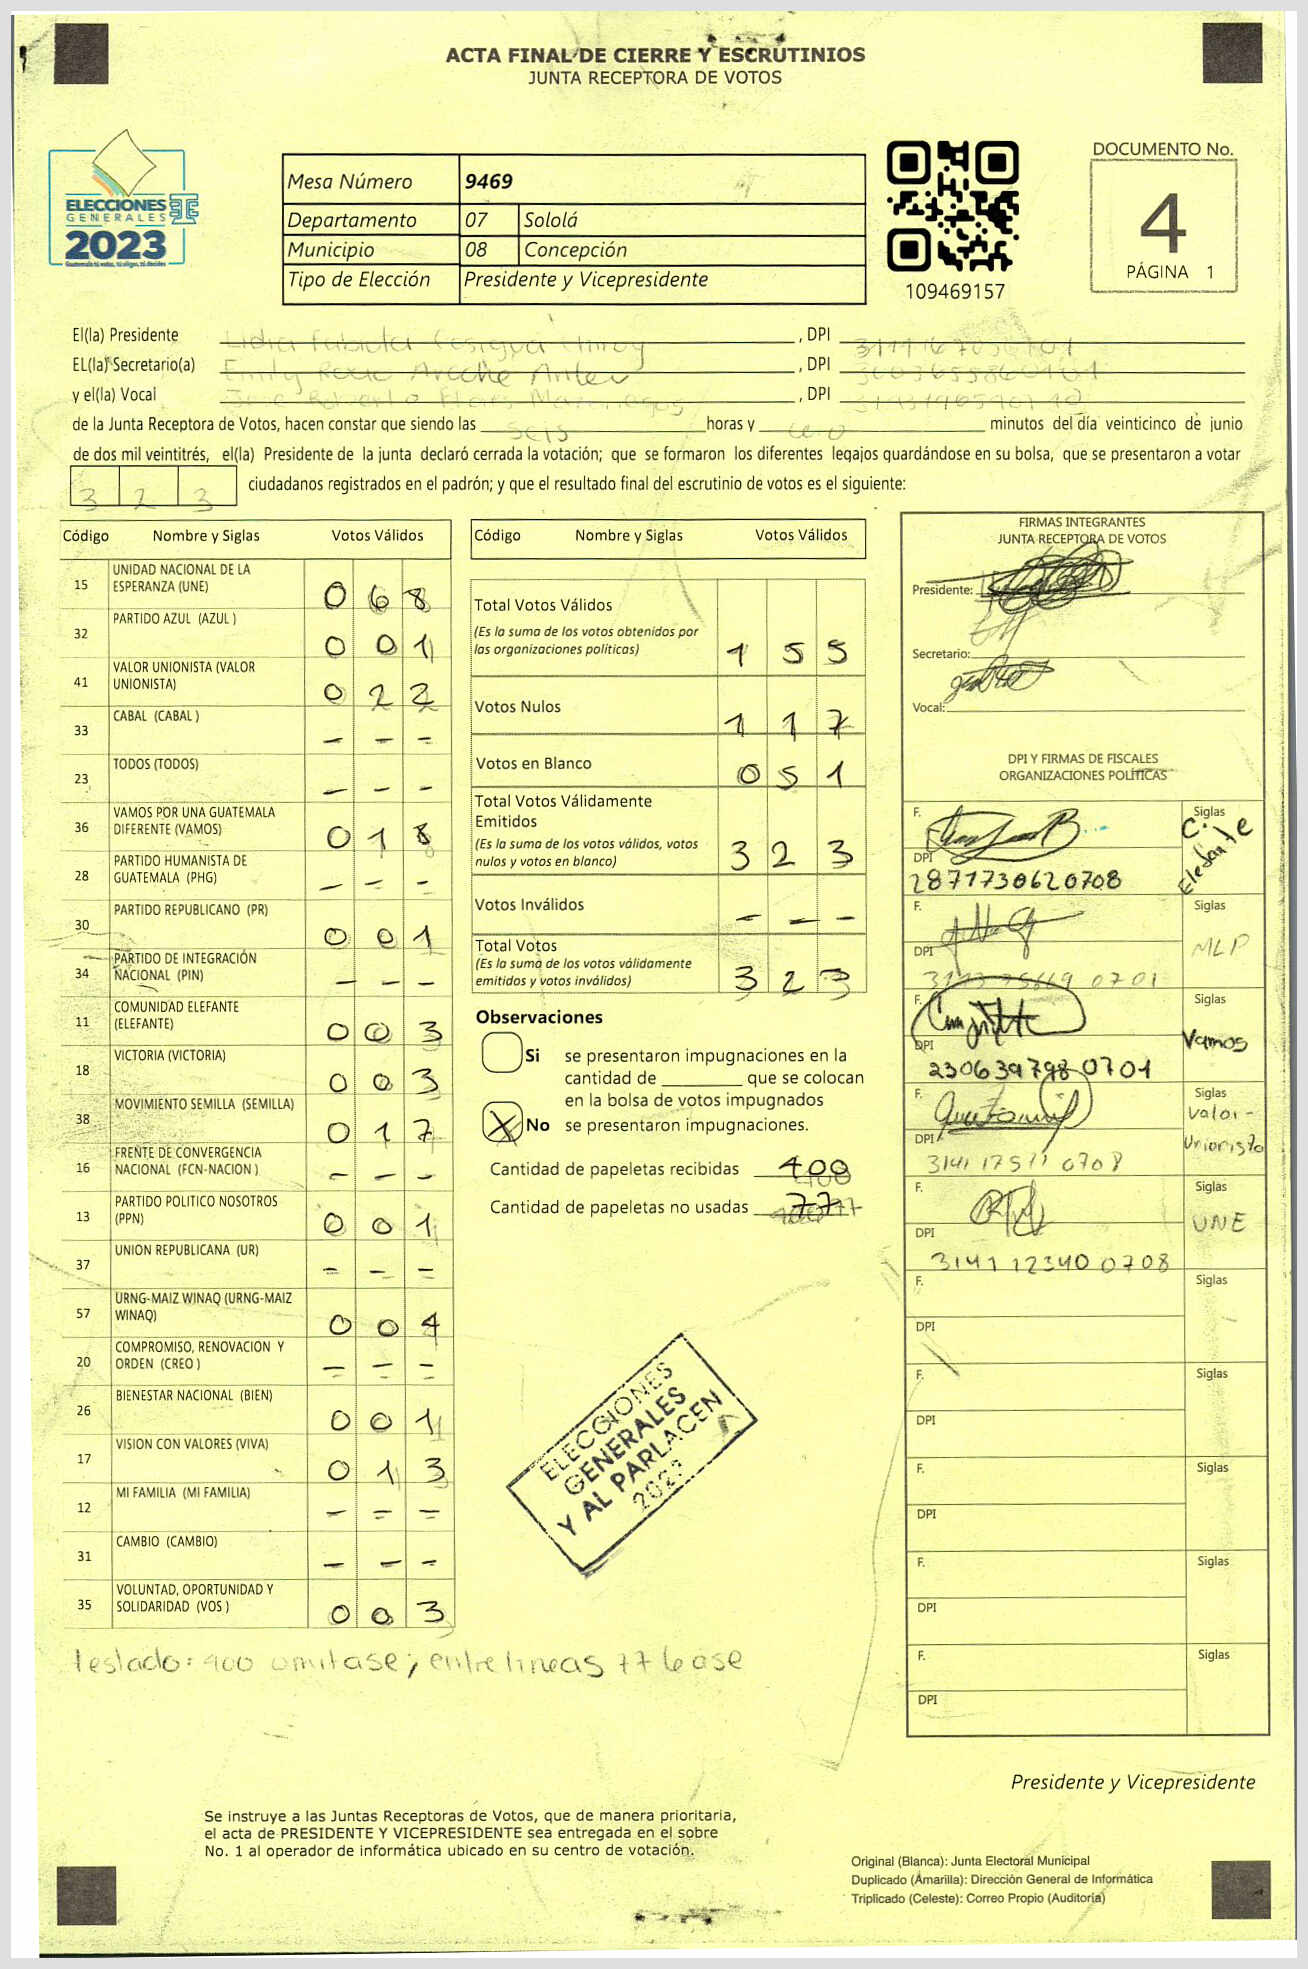 ACTA FINAL DE CIERRE Y ESCRUTINIOS
JUNTA RECEPTORA DE VOTOS
ELECCIONES
GENERALES
2023
Mesa Número 9469
Departamento 07 Sololá
Municipio 08 Concepción
Tipo de Elección Presidente y Vicepresidente
109469157
DOCUMENTO No.
4
PÁGINA 1
El(la) Presidente , DPI
EL(la) Secretario(a) Emily , DPI
y el(la) Vocal Jose Roberto , DPI
de la Junta Receptora de Votos, hacen constar que siendo las seis horas y minutos del día veinticinco de junio
de dos mil veintitrés, el(la) Presidente de la junta declaró cerrada la votación; que se formaron los diferentes legajos guardándose en su bolsa, que se presentaron a votar
3 2 3 ciudadanos registrados en el padrón; y que el resultado final del escrutinio de votos es el siguiente:
Código Nombre y Siglas Votos Válidos
15 UNIDAD NACIONAL DE LA ESPERANZA (UNE) 0 6 8
32 PARTIDO AZUL (AZUL ) 0 0 1
41 VALOR UNIONISTA (VALOR UNIONISTA) 0 2 2
33 CABAL (CABAL ) - - -
23 TODOS (TODOS) - - -
36 VAMOS POR UNA GUATEMALA DIFERENTE (VAMOS) 0 1 8
28 PARTIDO HUMANISTA DE GUATEMALA (PHG) - - -
30 PARTIDO REPUBLICANO (PR) 0 0 1
34 PARTIDO DE INTEGRACIÓN NACIONAL (PIN) - - -
11 COMUNIDAD ELEFANTE (ELEFANTE) 0 0 3
18 VICTORIA (VICTORIA) 0 0 3
38 MOVIMIENTO SEMILLA (SEMILLA) 0 1 7
16 FRENTE DE CONVERGENCIA NACIONAL (FCN-NACION ) - - -
13 PARTIDO POLITICO NOSOTROS (PPN) 0 0 1
37 UNION REPUBLICANA (UR) - - -
57 URNG-MAIZ WINAQ (URNG-MAIZ WINAQ) 0 0 4
20 COMPROMISO, RENOVACION Y ORDEN (CREO ) - - -
26 BIENESTAR NACIONAL (BIEN) 0 0 1
17 VISION CON VALORES (VIVA) 0 1 3
12 MI FAMILIA (MI FAMILIA) - - -
31 CAMBIO (CAMBIO) - - -
35 VOLUNTAD, OPORTUNIDAD Y SOLIDARIDAD (VOS ) 0 0 3
Testado: 400 omitase; entrelineas 77 lease
Código Nombre y Siglas Votos Válidos
Total Votos Válidos 1 5 5
(Es la suma de los votos obtenidos por
las organizaciones políticas)
Votos Nulos 1 1 7
Votos en Blanco 0 5 1
Total Votos Válidamente
Emitidos 3 2 3
(Es la suma de los votos válidos, votos
nulos y votos en blanco)
Votos Inválidos - - -
Total Votos 3 2 3
(Es la suma de los votos válidamente
emitidos y votos inválidos)
Observaciones
Si se presentaron impugnaciones en la
cantidad de que se colocan
en la bolsa de votos impugnados
X No se presentaron impugnaciones.
Cantidad de papeletas recibidas 400
Cantidad de papeletas no usadas 77
ELECCIONES
GENERALES
Y AL PARLACEN
2023
FIRMAS INTEGRANTES
JUNTA RECEPTORA DE VOTOS
Presidente:
Secretario:
Vocal:
DPI Y FIRMAS DE FISCALES
ORGANIZACIONES POLÍTICAS
F. Siglas C. Elefante
DPI 2871730620708
F. Siglas MLP
DPI
F. Siglas Vamos
DPI 2306397980701
F. Siglas Valor-Unionista
DPI 3141 17511 0708
F. Siglas UNE
DPI 3141 12340 0708
F. Siglas
DPI
F. Siglas
DPI
F. Siglas
DPI
F. Siglas
DPI
F. Siglas
DPI
Presidente y Vicepresidente
Se instruye a las Juntas Receptoras de Votos, que de manera prioritaria,
el acta de PRESIDENTE Y VICEPRESIDENTE sea entregada en el sobre
No. 1 al operador de informática ubicado en su centro de votación.
Original (Blanca): Junta Electoral Municipal
Duplicado (Amarilla): Dirección General de Informática
Triplicado (Celeste): Correo Propio (Auditoría)